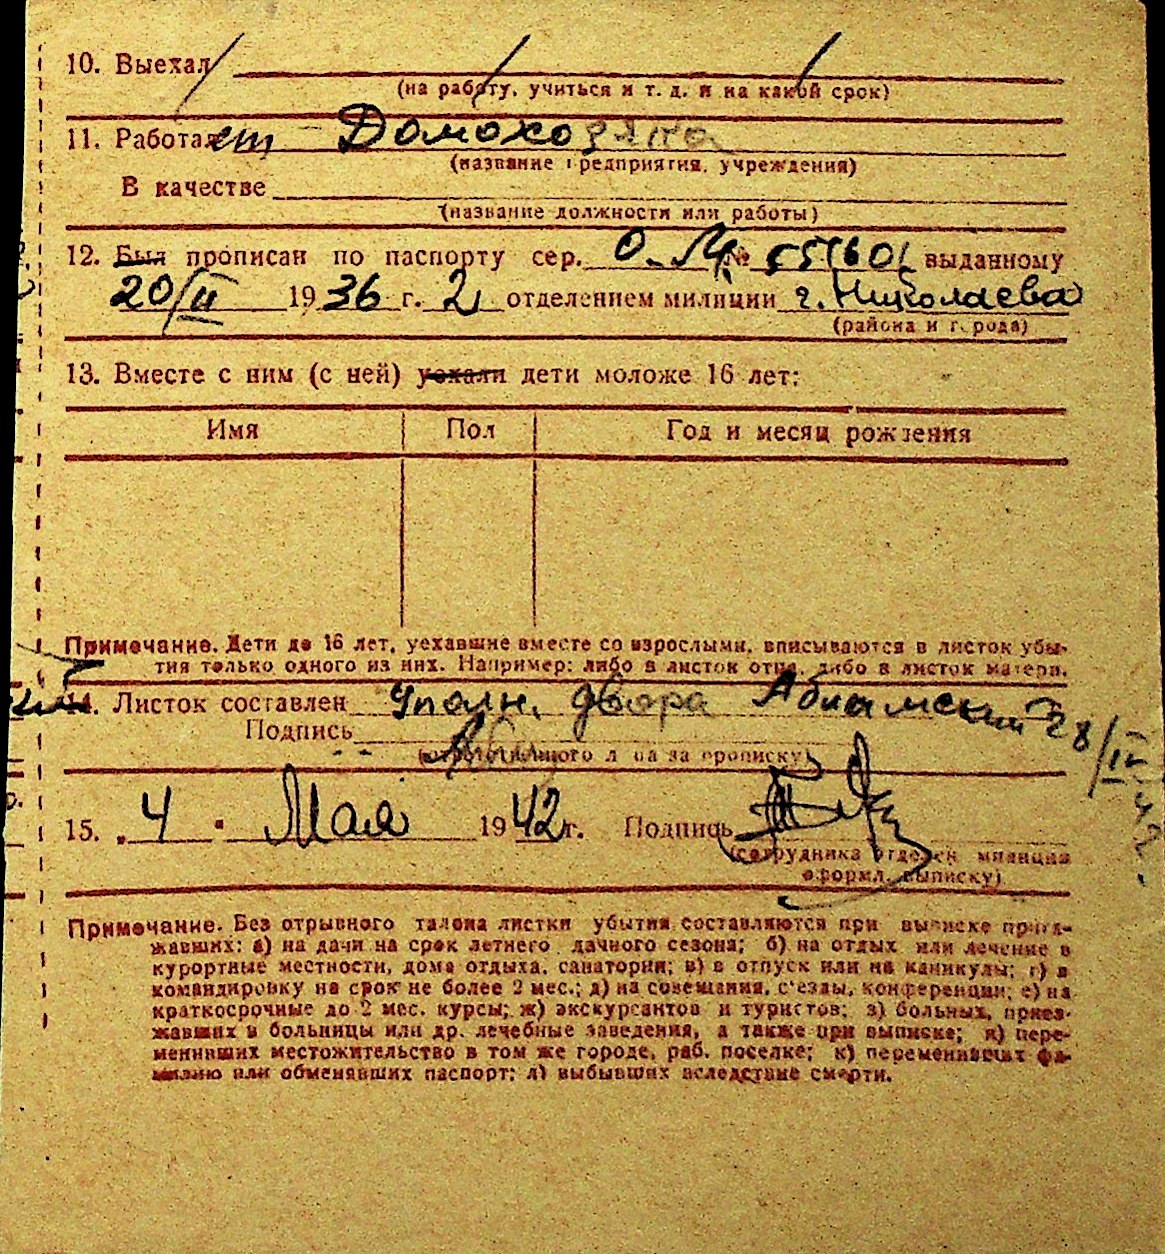 10. Выехал
(на работу, учиться и т. д. и на какой срок)
11. Работает - Домохозяйка
(название предприятия, учреждения)
В качестве
(название должности или работы)
12. Был прописан по паспорту сер. О. М. № 551601 выданному
20/II 1936 г. 2 отделением милиции г. Николаева
(района и города)
13. Вместе с ним (с ней) уехали дети моложе 16 лет:
Имя Пол Год и месяц рождения
Примечание. Дети до 16 лет, уехавшие вместе со взрослыми, вписываются в листок убы-
тия только одного из них. Например: либо в листок отца, либо в листок матери.
14. Листок составлен Уполн. двора 28/IV
42.
Подпись
(ответственного лица за прописку)
15. „4" Мая 1942 г. Подпись
(сотрудника отделен. милиции
оформл. выписку)
Примечание. Без отрывного талона листки убытия составляются при выписке приез-
жавших: а) на дачи на срок летнего дачного сезона; б) на отдых или лечение в
курортные местности, дома отдыха, санатории; в) в отпуск или на каникулы; г) в
командировку на срок не более 2 мес.; д) на совещания, с'езды, конференции; е) на
краткосрочные до 2 мес. курсы; ж) экскурсантов и туристов; з) больных, приез-
жавших в больницы или др. лечебные заведения, а также при выписке; и) пере-
менивших местожительство в том же городе, раб. поселке; к) переменивших фа-
милию или обменявших паспорт; л) выбывших вследствие смерти.